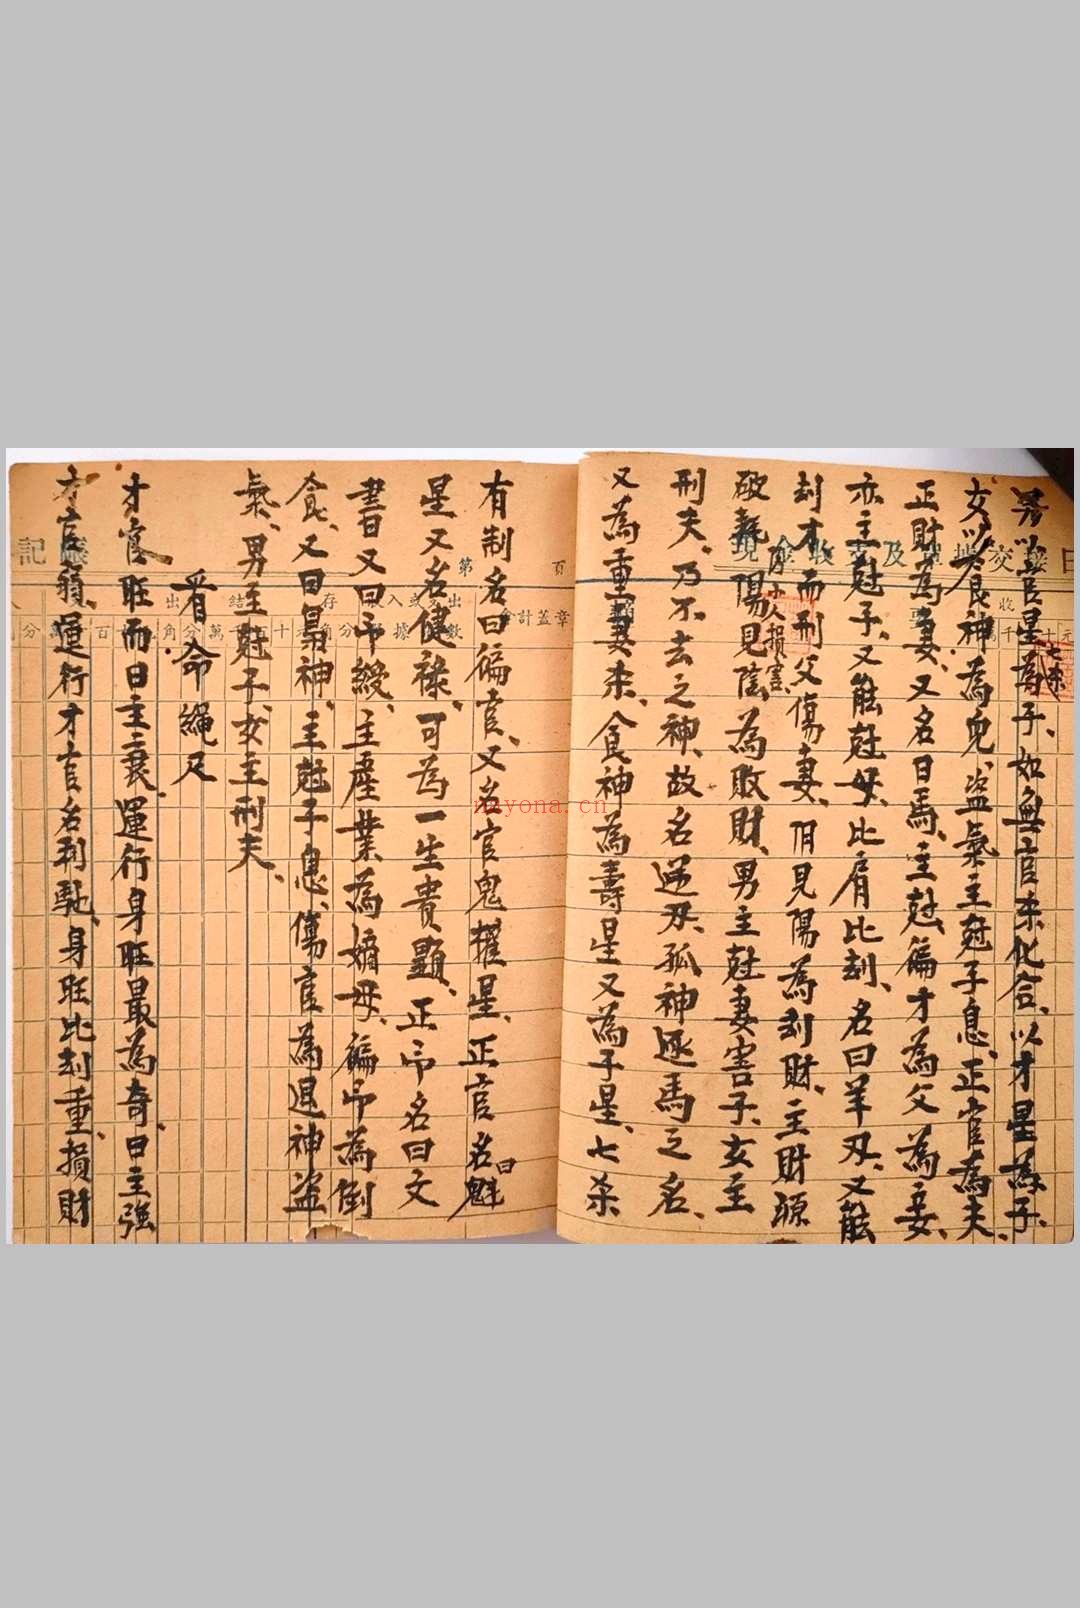 男以官星為子、如無官杀化合、以才星為子、
七杀
女以食神為兒、盗氣主尅子息、正官為夫、
正財為妻、又名曰馬、主尅、偏才為父為妾、
亦主尅子、又能尅母、比肩比刦、名曰羊刃、又能
刦才而刑父傷妻、阴見陽為刦財、主財源
破耗、防小人損害、陽見陰、為敗財、男主尅妻害子、女主
刑夫、乃不去之神、故名逆刃、孤神逐馬之名、
又為重妻杀、食神為壽星又為子星、七杀
有制名曰偏官、又名官鬼權星、正官名曰魁
星又名健祿、可為一生貴顯、正印名曰文
書又曰印綬、主產業為嫡母、偏印為倒
食、又曰梟神、主尅子息、傷官為退神盗
氣、男主尅子、女主刑夫、
看命繩尺
才官旺而日主衰、運行身旺最為奇、日主強
才官弱、運行才官名利馳、身旺比刦重、損財
記
第 頁
及 收
收
出 結 存
分 百 萬 角 分 十
章蓋計會
mayona.cn